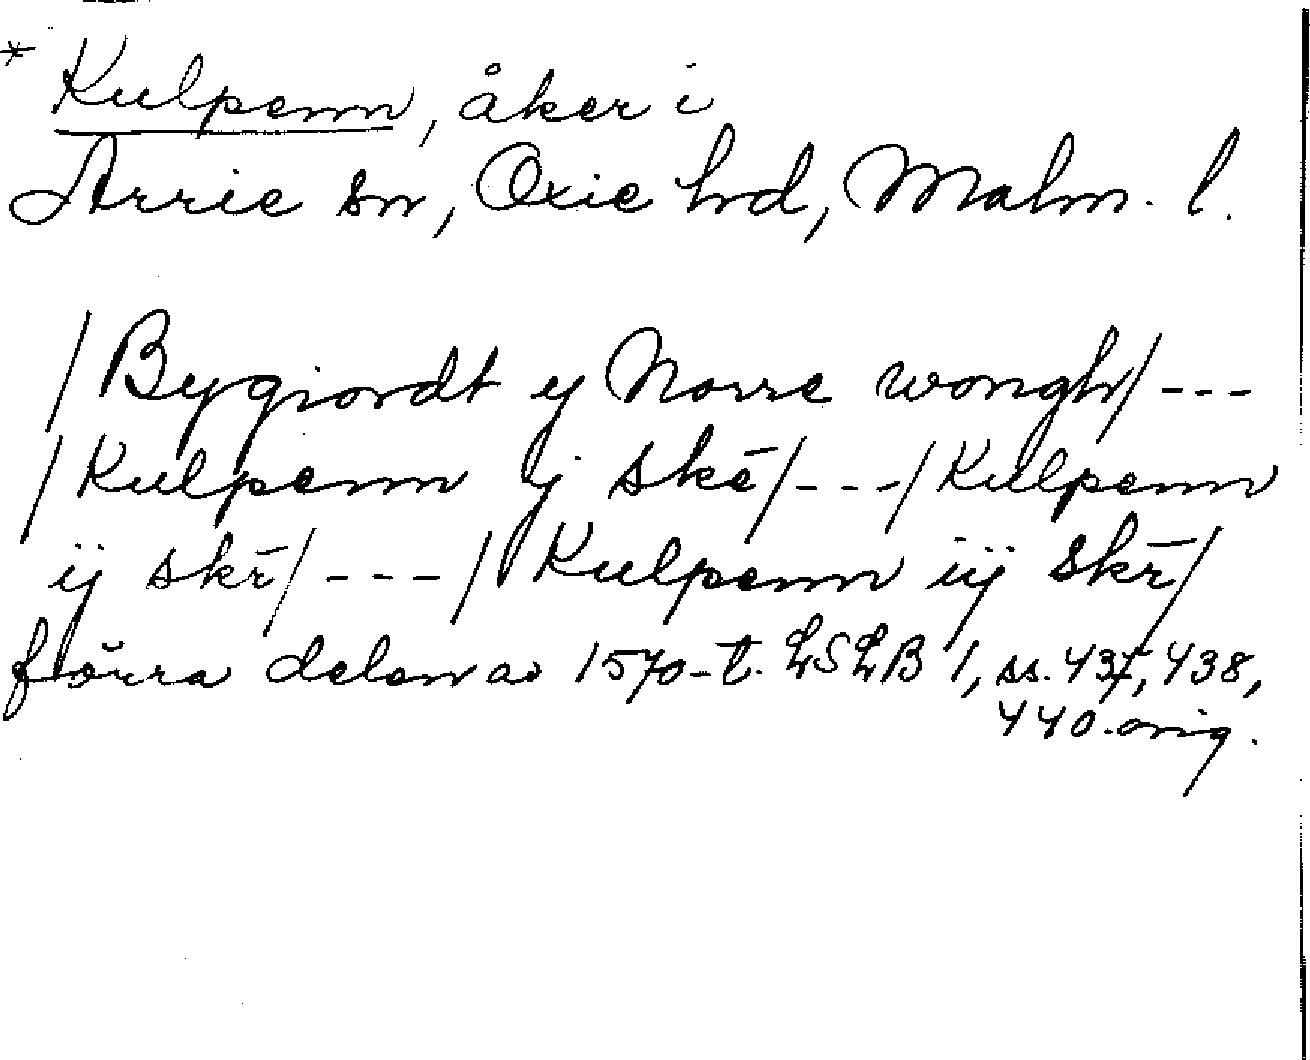 * Kulpenn, åker i
Arrie sn, Oxie hd, Malm. l.
/Bygiordt y Norre wongh/---
/Kulpenn j skē/---/Kulpenn
ij skr̄/---/Kulpenn iij skr̄/
förra delen av 1570-t. LSLB 1, ss. 437, 438,
440. orig.